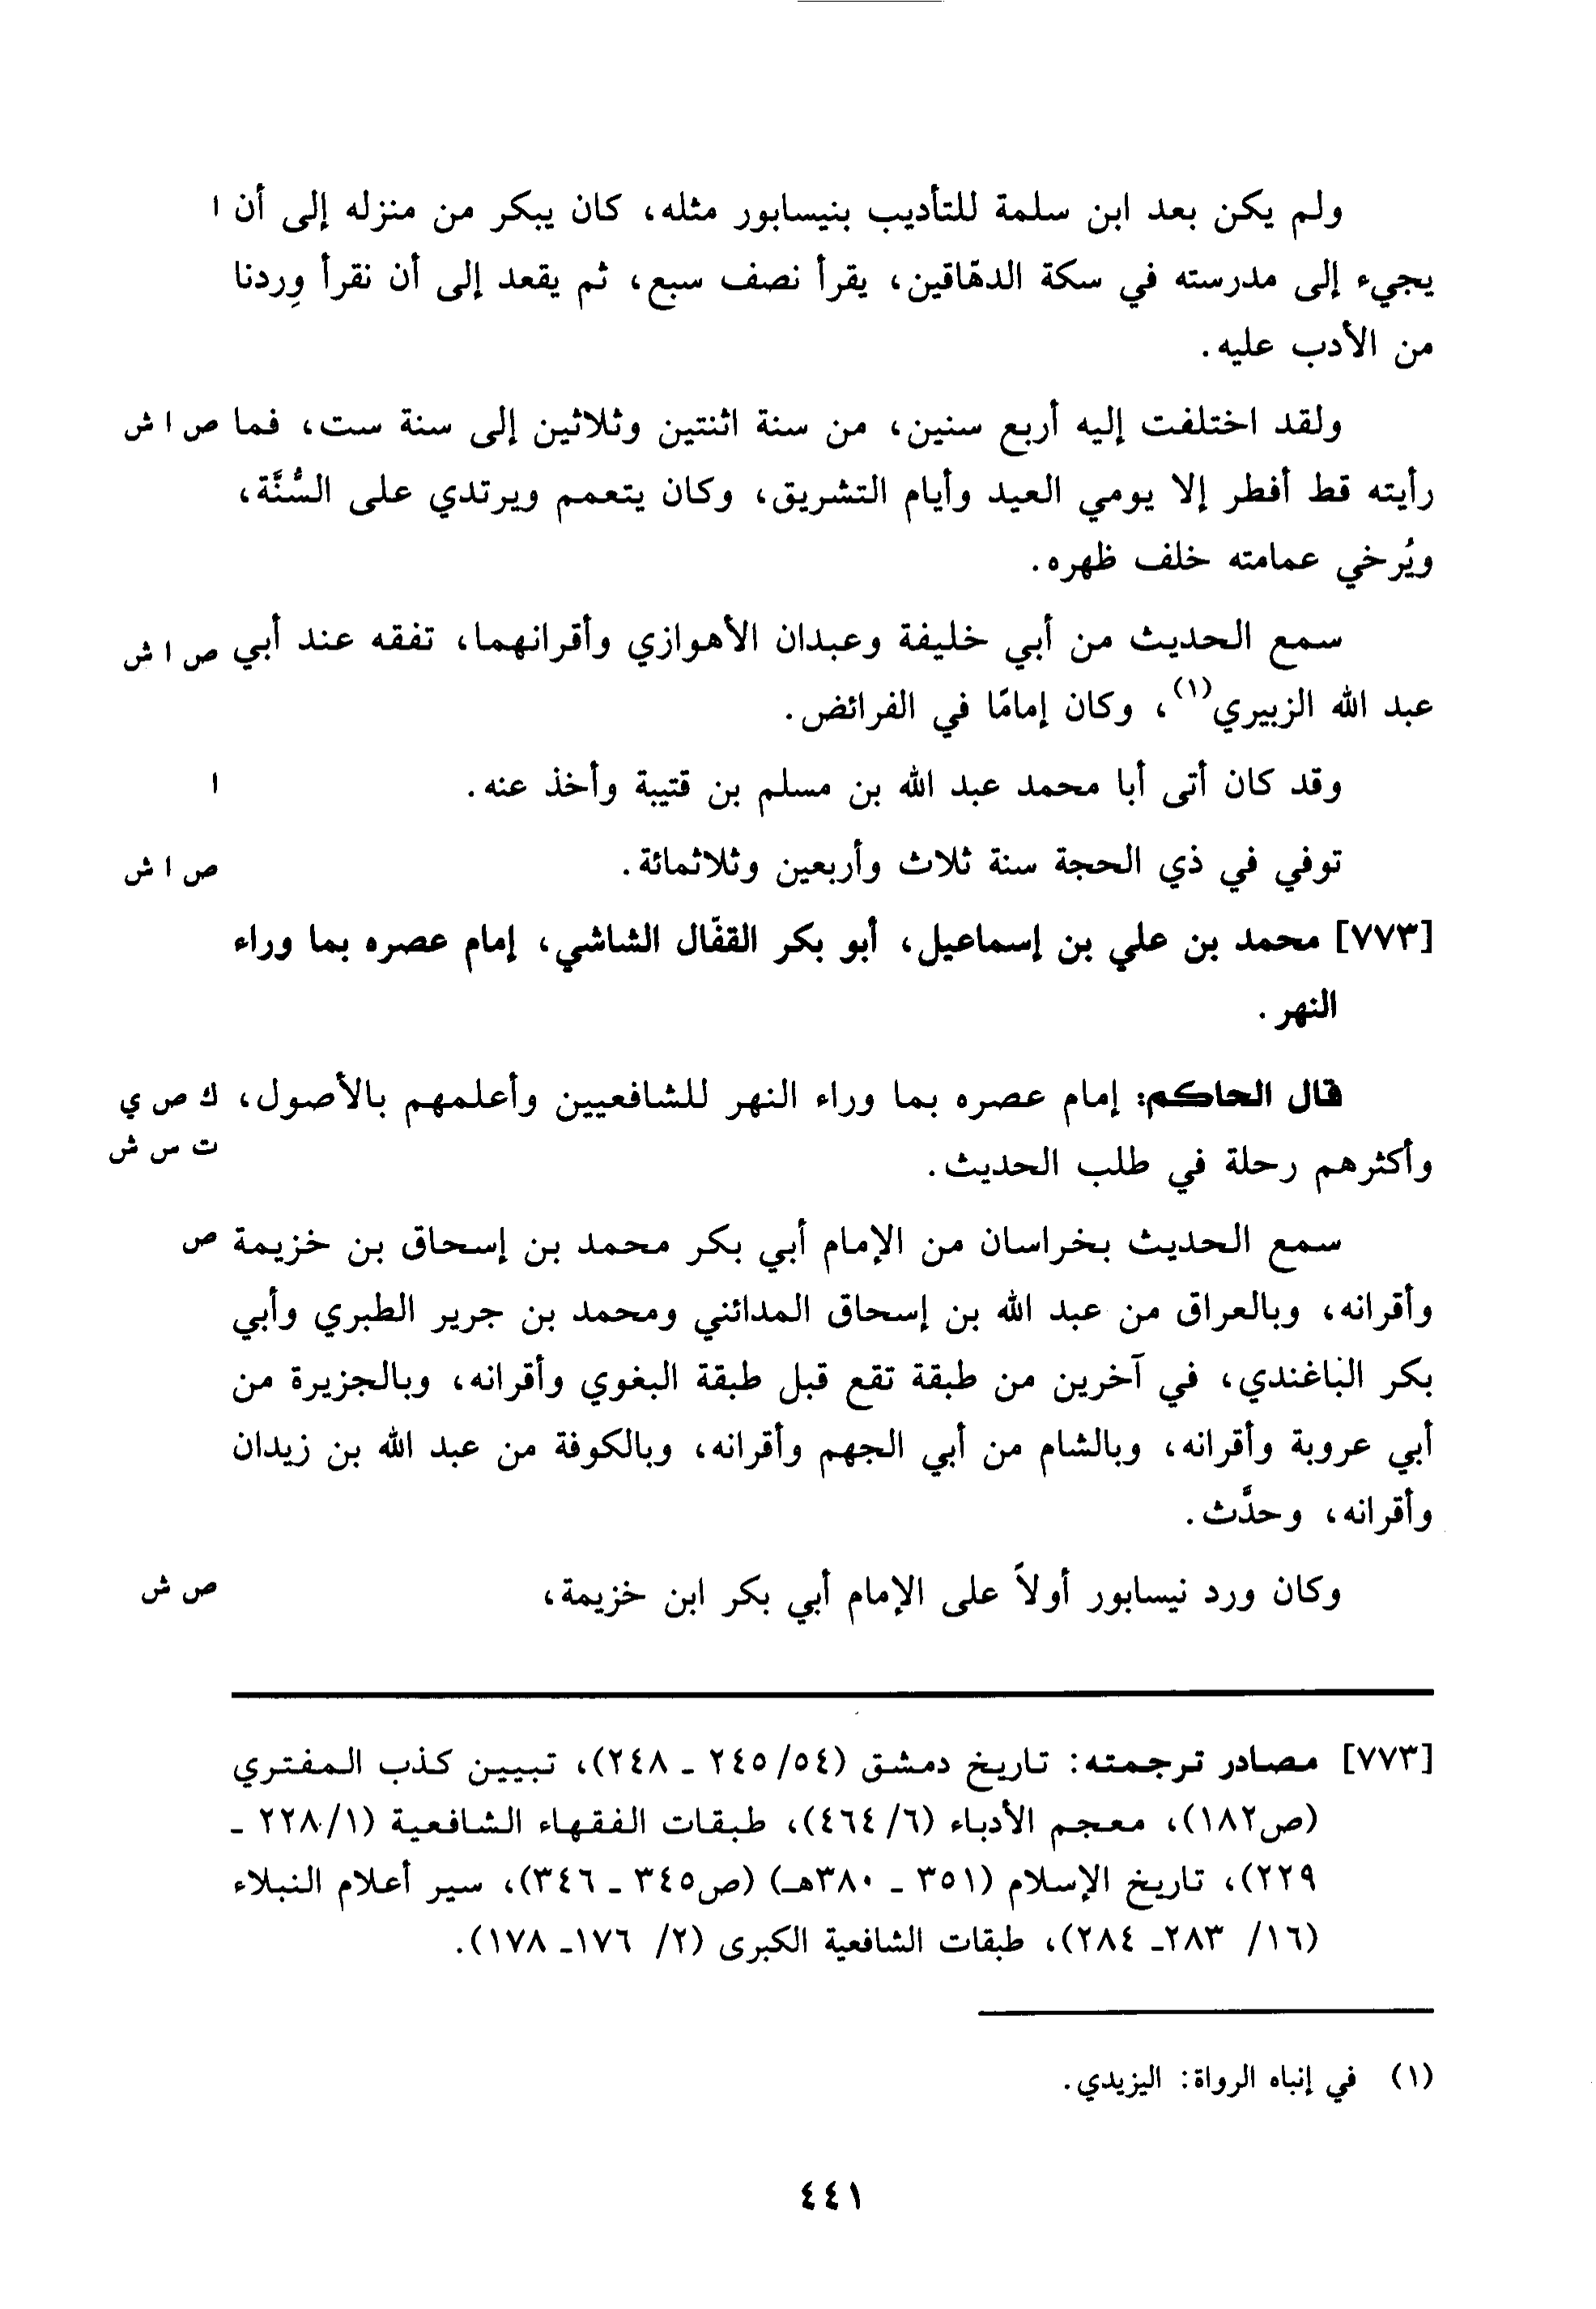 ولم يكن بعد ابن سلمة للتأديب بنيسابور مثله، كان يبكر من منزله إلى أن ا
يجيء إلى مدرسته في سكة الدهّاقين، يقرأ نصف سبع، ثم يقعد إلى أن نقرأ وِردنا
من الأدب عليه.
ولقد اختلفت إليه أربع سنين، من سنة اثنتين وثلاثين إلى سنة ست، فما ص ا ش
رأيته قط أفطر إلا يومي العيد وأيام التشريق، وكان يتعمم ويرتدي على السُّنَّة،
ويُرخي عمامته خلف ظهره.
سمع الحديث من أبي خليفة وعبدان الأهوازي وأقرانهما، تفقه عند أبي ص ا ش
عبد الله الزبيري(١)، وكان إمامًا في الفرائض.
وقد كان أتى أبا محمد عبد الله بن مسلم بن قتيبة وأخذ عنه. ا
توفي في ذي الحجة سنة ثلاث وأربعين وثلاثمائة. ص ا ش
[٧٧٣] محمد بن علي بن إسماعيل، أبو بكر القفّال الشاشي، إمام عصره بما وراء
النهر.
قال الحاكم: إمام عصره بما وراء النهر للشافعيين وأعلمهم بالأصول، ك ص ي
وأكثرهم رحلة في طلب الحديث. ت س ش
سمع الحديث بخراسان من الإمام أبي بكر محمد بن إسحاق بن خزيمة ص
وأقرانه، وبالعراق من عبد الله بن إسحاق المدائني ومحمد بن جرير الطبري وأبي
بكر الباغندي، في آخرين من طبقة تقع قبل طبقة البغوي وأقرانه، وبالجزيرة من
أبي عروبة وأقرانه، وبالشام من أبي الجهم وأقرانه، وبالكوفة من عبد الله بن زيدان
وأقرانه، وحدَّث.
وكان ورد نيسابور أولاً على الإمام أبي بكر ابن خزيمة، ص ش
[٧٧٣] مصادر ترجمته: تاريخ دمشق (٥٤/ ٢٤٥ ـ ٢٤٨)، تبيين كذب المفتري
(ص١٨٢)، معجم الأدباء (٦/ ٤٦٤)، طبقات الفقهاء الشافعية (١/ ٢٢٨ ـ
٢٢٩)، تاريخ الإسلام (٣٥١ ـ ٣٨٠هـ) (ص٣٤٥ ـ ٣٤٦)، سير أعلام النبلاء
(١٦/ ٢٨٣ـ ٢٨٤)، طبقات الشافعية الكبرى (٢/ ١٧٦ـ ١٧٨).
(١) في إنباه الرواة: اليزيدي.
٤٤١